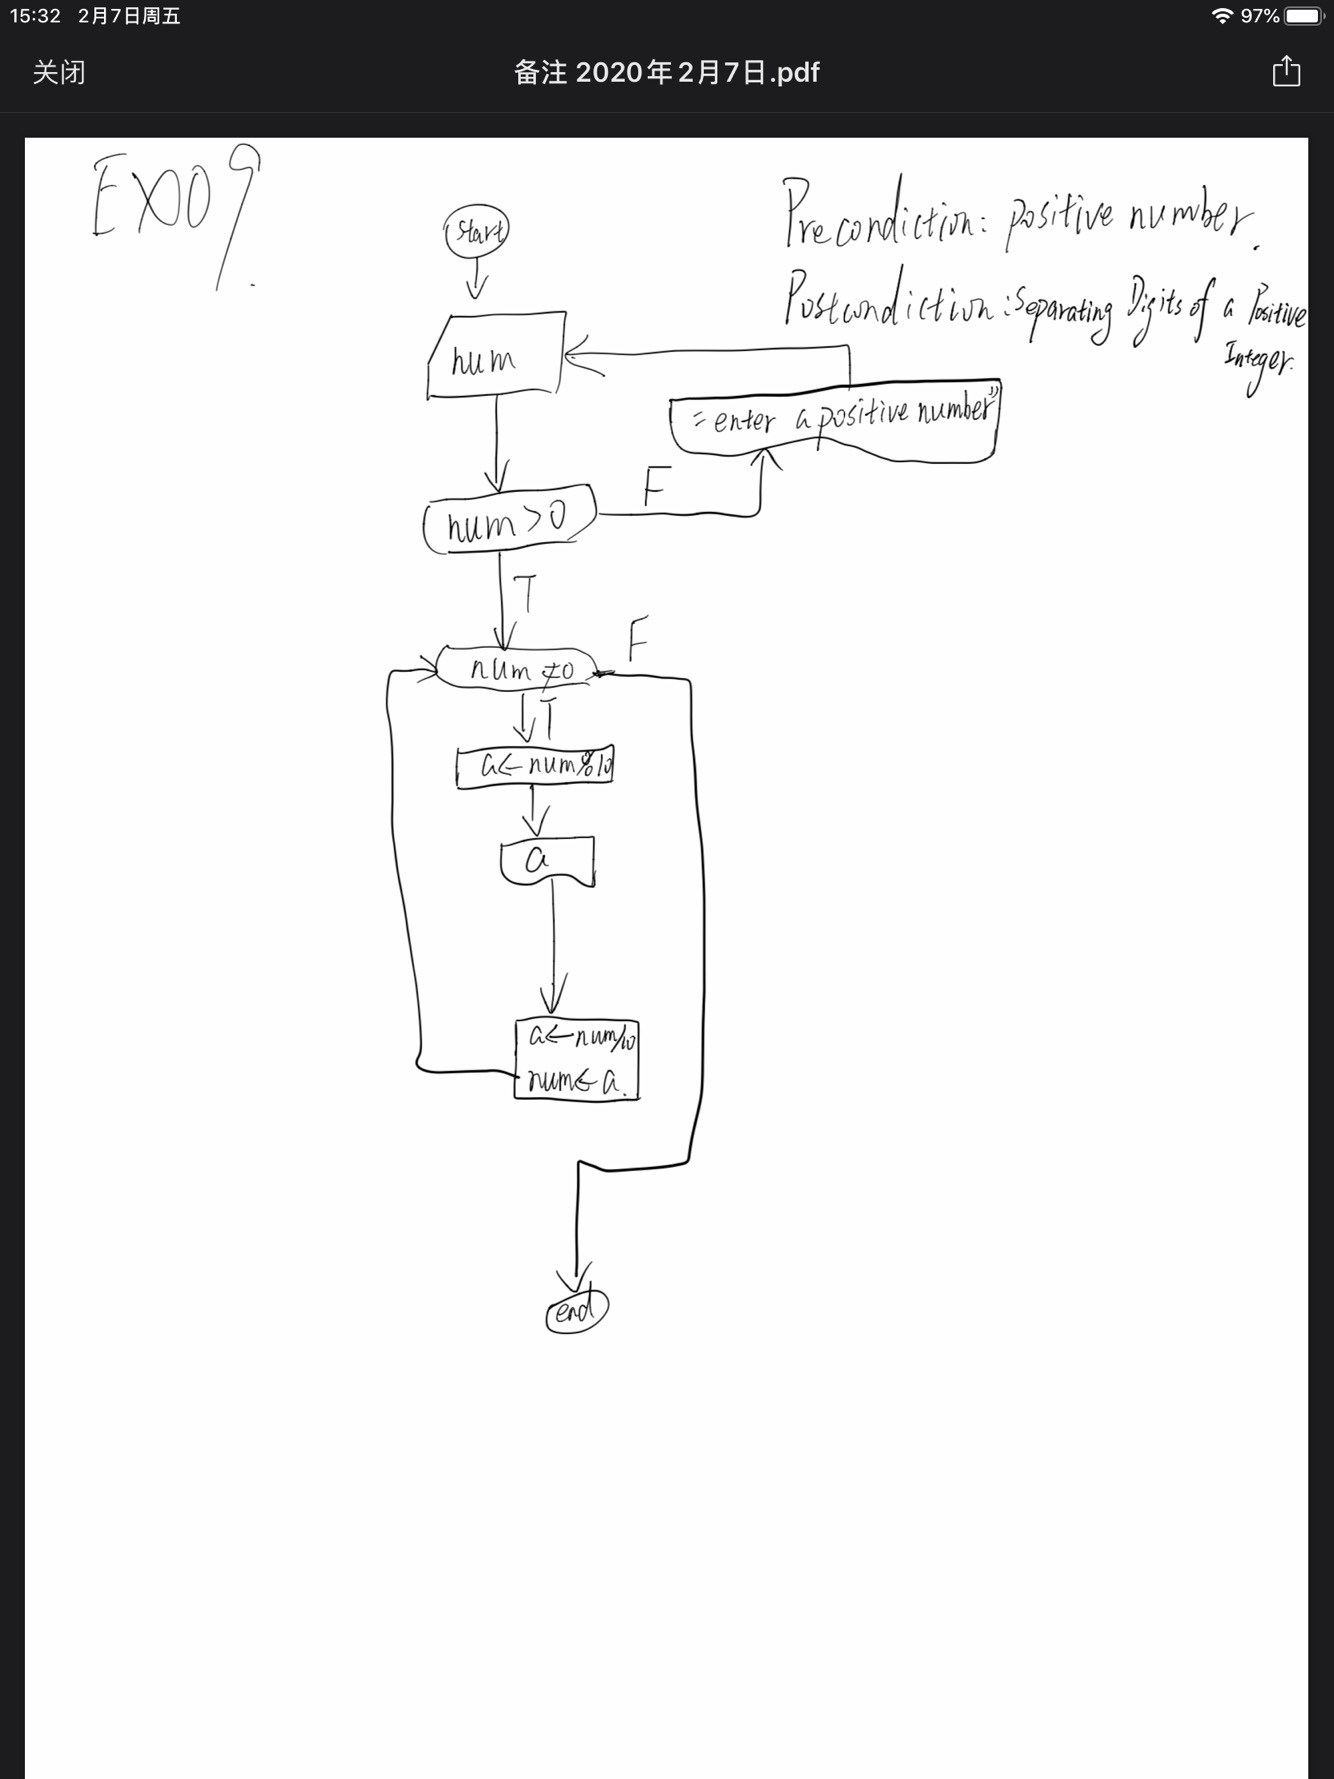 15:32 2月7日周五
97%
关闭
备注 2020年2月7日.pdf
EX009.
Precondiction: positive number.
Postcondiction: Separating Digits of a Positive
Integer.
Start
num
"enter a positive number"
num>0
F
T
num≠0
F
T
a←num%10
a
a←num/10
num←a.
end